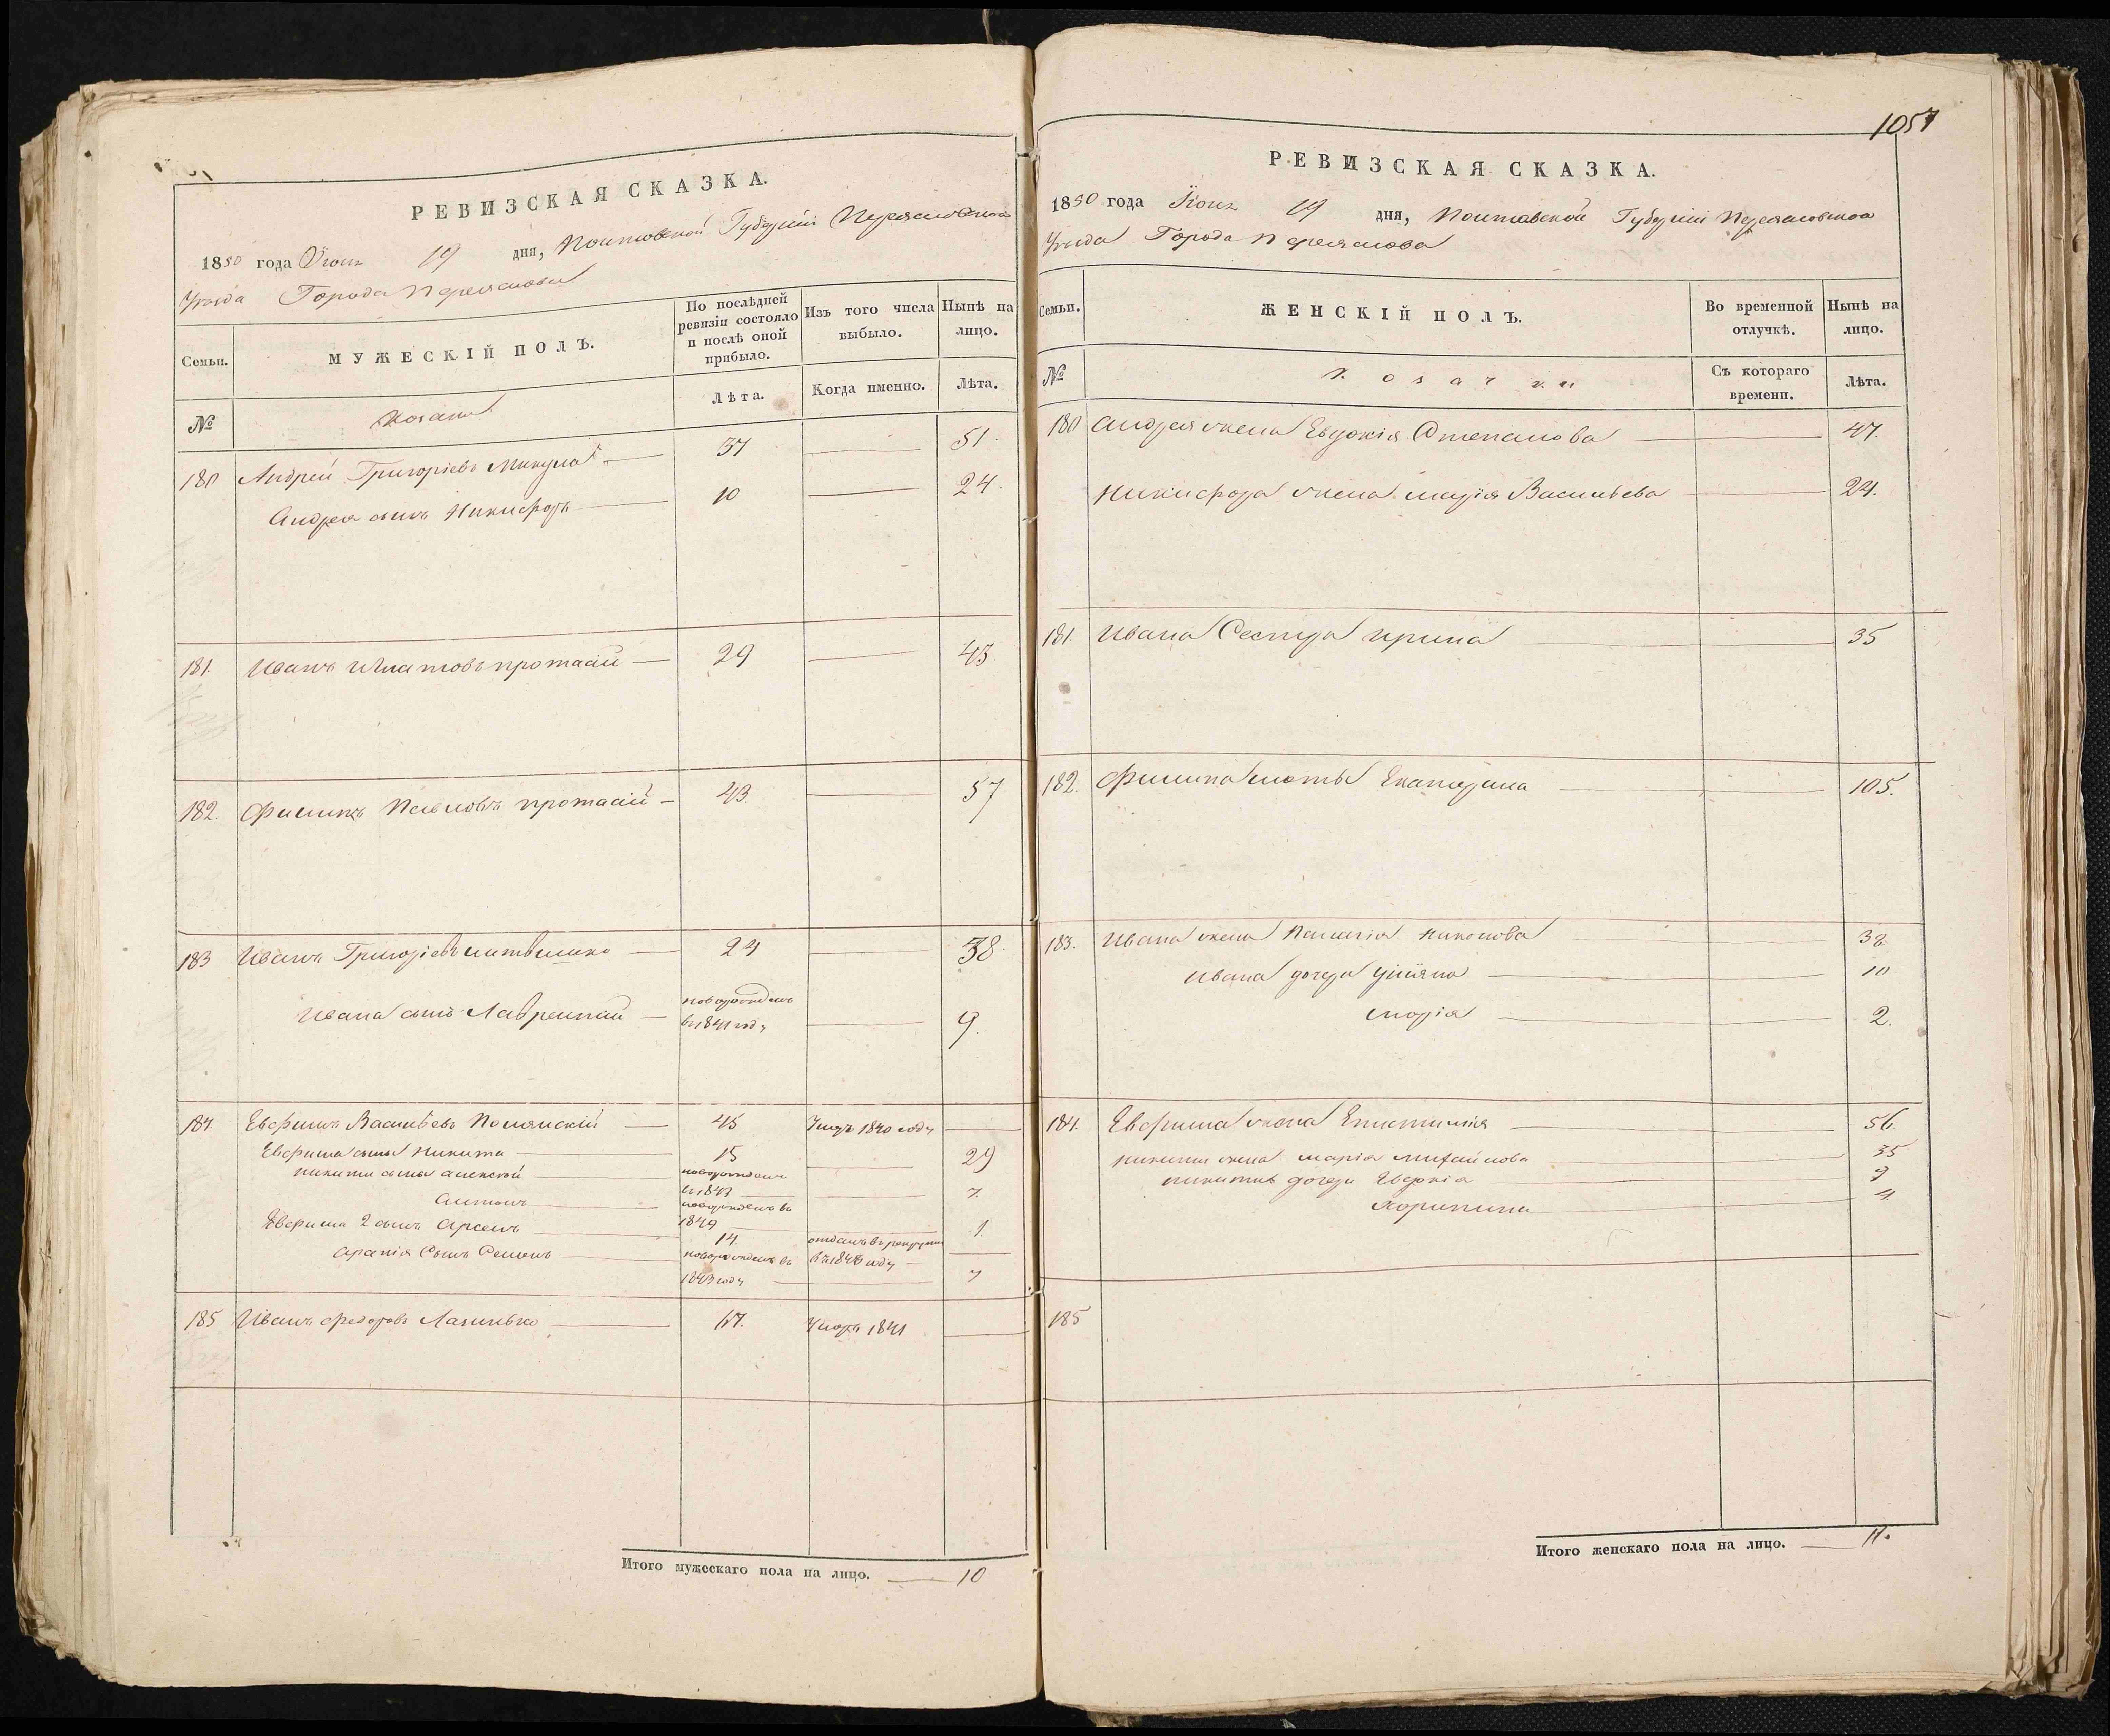 РЕВИЗСКАЯ СКАЗКА.
1850 года Июня 19 дня, Полтавской Губерніи Переяславскаго
Уѣзда Города Переяслава
Семьи. МУЖЕСКІЙ ПОЛЪ. По послѣдней ревизіи состояло и послѣ оной прибыло. Изъ того числа выбыло. Нынѣ на лицо.
№ Козаки Лѣта. Когда именно. Лѣта.
180 Андрей Григоріевъ Микула 37 — 51.
Андрея сынъ Никифоръ 10 — 24.
181. Иванъ Игнатовъ Протасій 29 — 43
182. Филипъ Павловъ Протасій 43. — 57
183 Иванъ Григоріевъ Литвиненко 24 — 38.
Ивана сынъ Лаврентій новорожденъ
въ 1841 году — 9.
184. Евфимъ Васильевъ Полянскій 45 Умеръ 1840 году —
Евфима сынъ Никита 15 — 29
Никиты сынъ Алексѣй новорожденъ
въ 1843 — 7.
Антонъ новорожденъ въ
1849 — 1.
Евфима 2 сынъ Арсенъ 14. отданъ въ рекруты
въ 1846 году —
сынъ Семенъ новорожденъ въ
1843 году — 7
185 Иванъ Федоровъ 67. Умеръ 1841 —
Итого мужескаго пола на лицо. — 10
1057
РЕВИЗСКАЯ СКАЗКА.
1850 года Іюня 19 дня, Полтавской Губерніи Переяславскаго
Уѣзда Города Переяслава
Семьи. ЖЕНСКІЙ ПОЛЪ. Во временной отлучкѣ. Нынѣ на лицо.
№ Козачки Съ котораго времени. Лѣта.
180 Андрея жена Евдокія Степанова — 47.
Никифора жена Марія Васильева — 24.
181. Ивана Сестра Ирина — 35
182. Филипа мать Екатерина — 105.
183. Ивана жена Палагія Никонова 38
Ивана дочери Уліяна — 10
Марія — 2.
184. Евфима жена Епистимія — 56.
Никиты жена Марія Михайлова 35
Никиты дочери Евдокія 9
4
185
Итого женскаго пола на лицо. — 11.